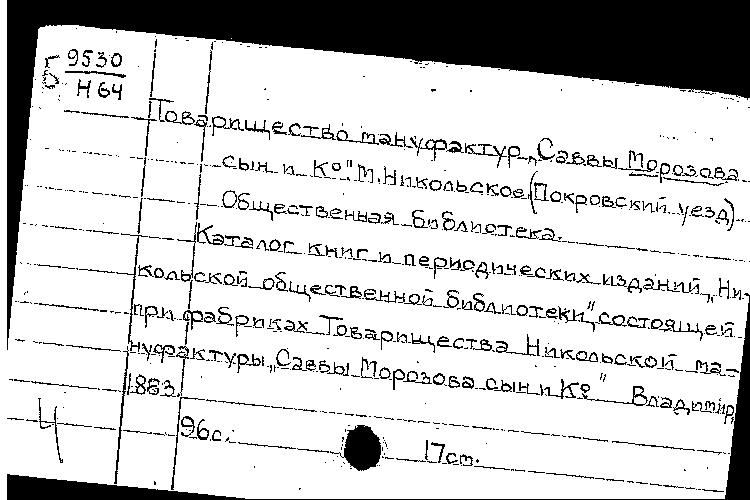 Б 9530
Н 64
Товарищество мануфактур „Саввы Морозова
сын и К°". М. Никольское (Покровский уезд)
Общественная библиотека.
Каталог книг и периодических изданий „Ни-
кольской общественной библиотеки", состоящей
при фабриках Товарищества Никольской ма-
нуфактуры „Саввы Морозова сын и К°" Владимир,
1883.
96с. 17см.
Ч